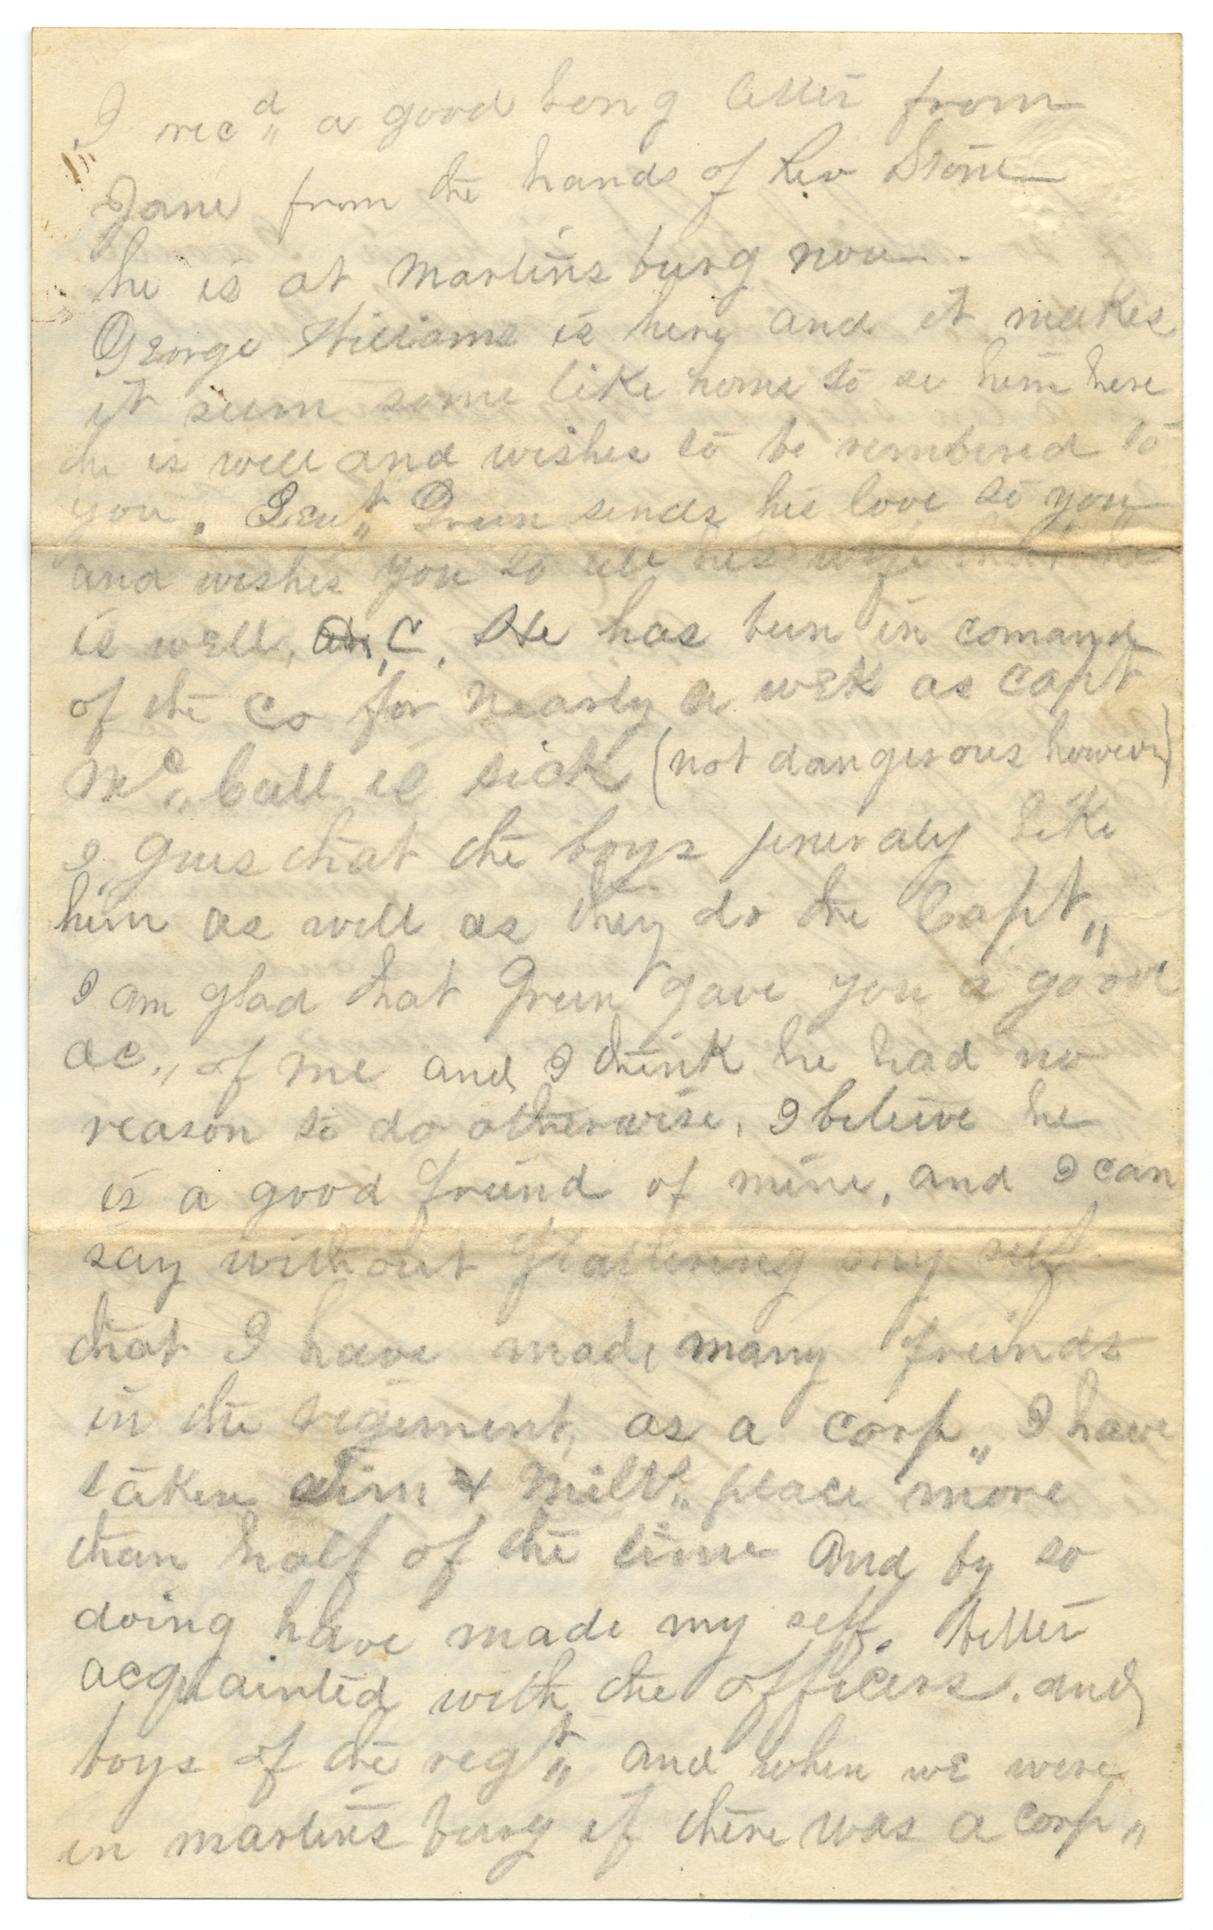 I recd,, a good long letter from
Jane from the hands of Rev Stone
he is at Martinsburg now.
George Williams is here and it makes
it seem some like home to se him here
he is well and wishes to be rembered to
you. Leut,, Green sends his love to you
and wishes you to tell his wife that he
is well, &c. He has been in comand
of the Co for nearly a wek as Capt
Mc,, Call is sick (not dangerous however)
I gues that the boys jeneraly like
him as well as they do the Capt,,
I am glad that Green gave you a good
ac,, of me and I think he had no
reason to do otherwise. I beleive he
is a good freind of mine, and I can
say without flattering my self
that I have made many freinds
in the regiment, as a corp,, I have
taken Jim & Milt,, place more
than half of the time And by so
doing have made my self. better
acquainted with the officers. and
boys of the regt,, and when we were
in martinsburg if there was a corp,,